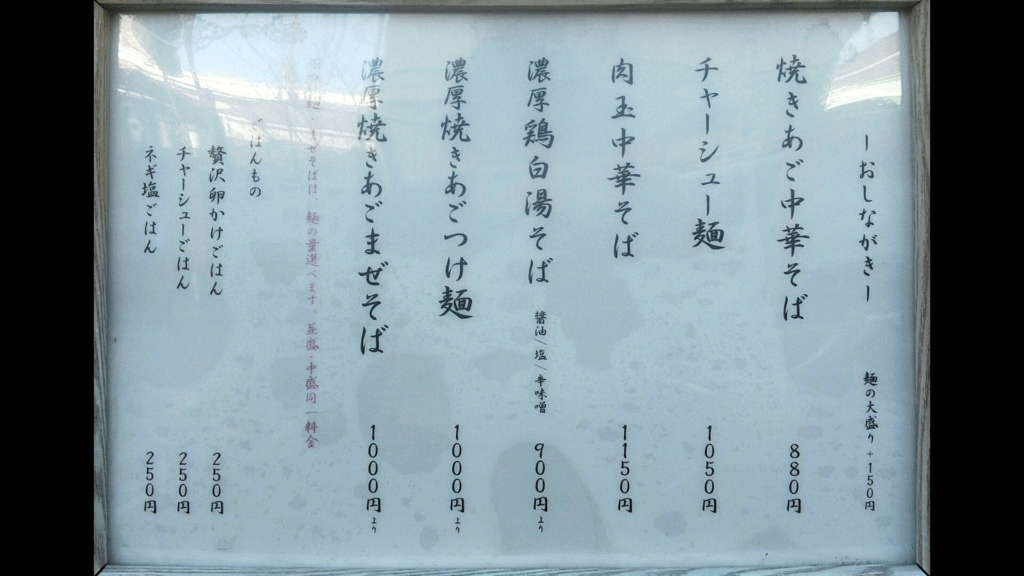 ーおしながきー
麺の大盛り +150円
焼きあご中華そば 880円
チャーシュー麺 1050円
肉玉中華そば 1150円
濃厚鶏白湯そば 醤油\塩\辛味噌 900円より
濃厚焼きあごつけ麺 1000円より
濃厚焼きあごまぜそば 1000円より
麺・まぜそばは、麺の量選べます。並盛・中盛同一料金
ごはんもの
贅沢卵かけごはん 250円
チャーシューごはん 250円
ネギ塩ごはん 250円